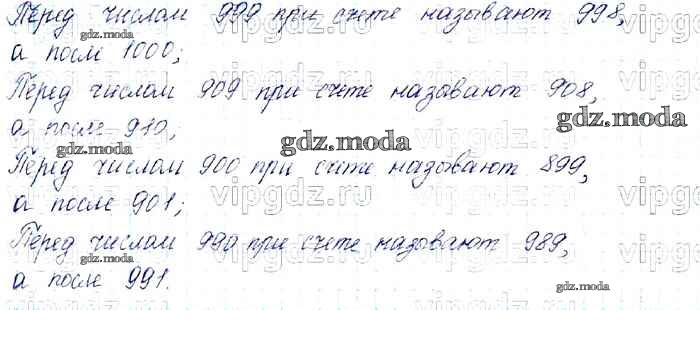 Перед числом 999 при счете называют 998,
а после 1000;
Перед числом 909 при счете называют 908,
а после 910,
Перед числом 900 при счете называют 899,
а после 901;
Перед числом 990 при счете называют 989,
а после 991.
gdz.moda
gdz.moda
gdz.moda
gdz.moda
gdz.moda
gdz.moda
gdz.moda
vipgdz.ru